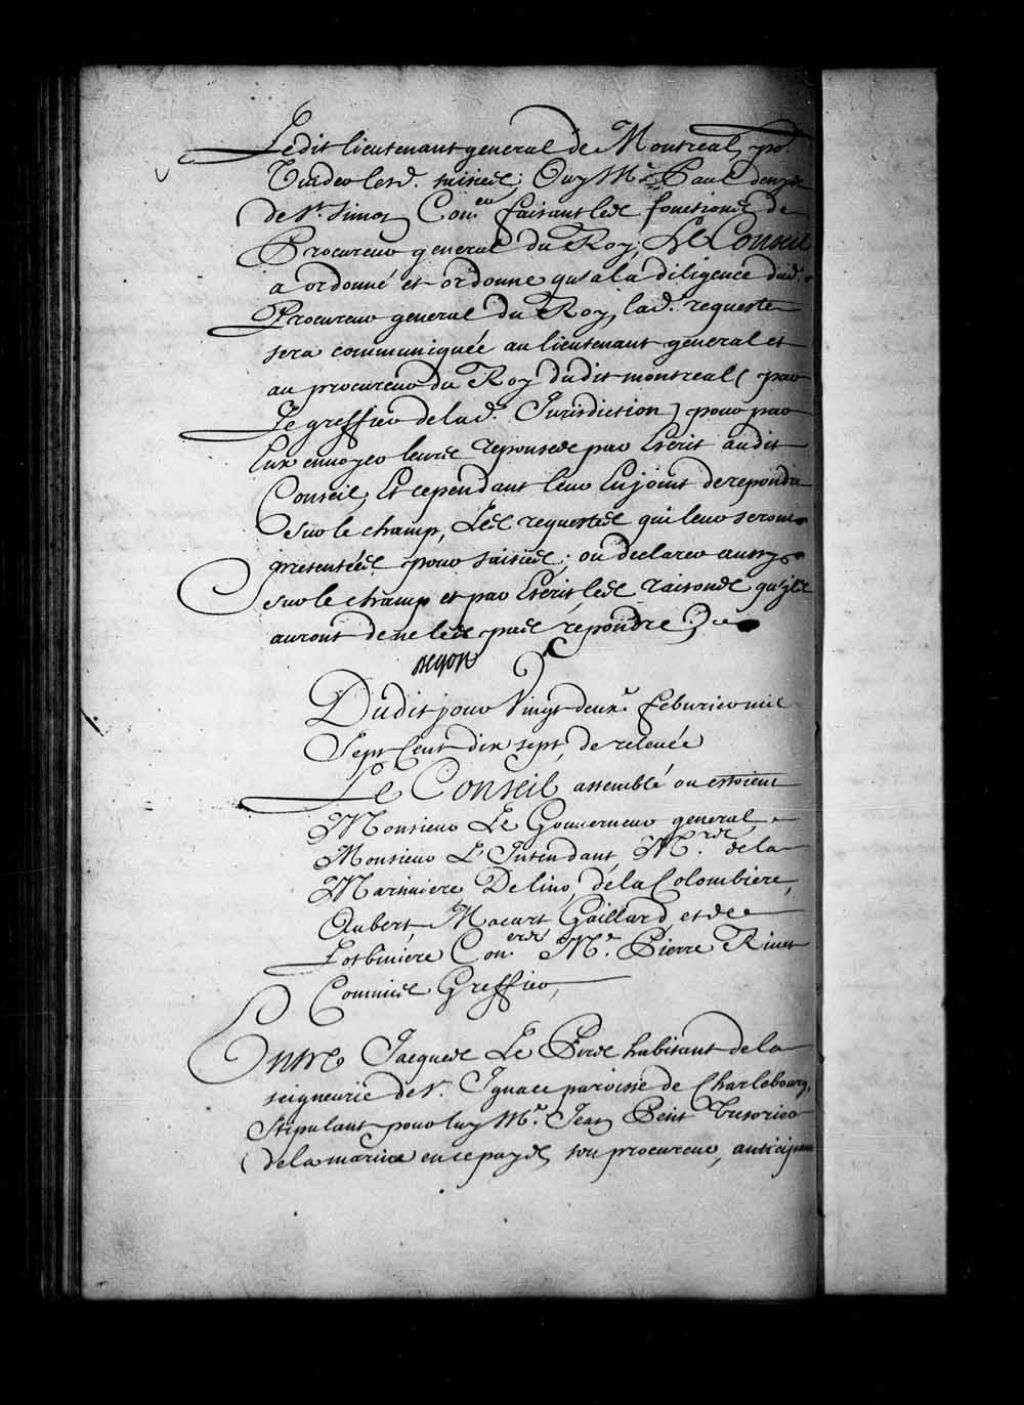 Ledit lieutenant general de Montreal, po.r
Vuider lesd. saisies; Ouy M.e Paul denys
de St. Simon Con.er faisant les fonctions de
Procureur general du Roy; Le Conseil
a ordonné et ordonne qu'a la diligence dud.
Procureur general du Roy, lad. requeste
sera communiquée au lieutenant general et
au procureur du Roy dudit montreal (par
Le greffier de lad. Jurisdiction) pour par
Eux envoyer leurs reponses par Escrit audit
Conseil, Et cependant leur Enjoint de repondre
sur le champ, Les requestes qui leur seront
presentées pour saisies; ou declarer aussy
sur le champ et par Escrit les raisons qu'ils
auront de ne les pas repondre
Begon
Dudit jour Vingt deux.e feburier mil
Sept Cent dix sept, de relevée
Le Conseil assemblé ou estoient
Monsieur Le Gouverneur general,
Monsieur L'Intendant, M.rs de la
Martiniere Delino, de la Colombiere,
Aubert, Macart Gaillard, et de
Lotbiniere Con.ers M.e Pierre Rivet
Commis Greffier,
Entre Jacques Le Bire habitant de la
seigneurie de St. Ignace paroisse de Charlebourg,
Stipulant pour luy M.e Jean Petit Tresorier
de la marine en ce pays, son procureur, anticipant